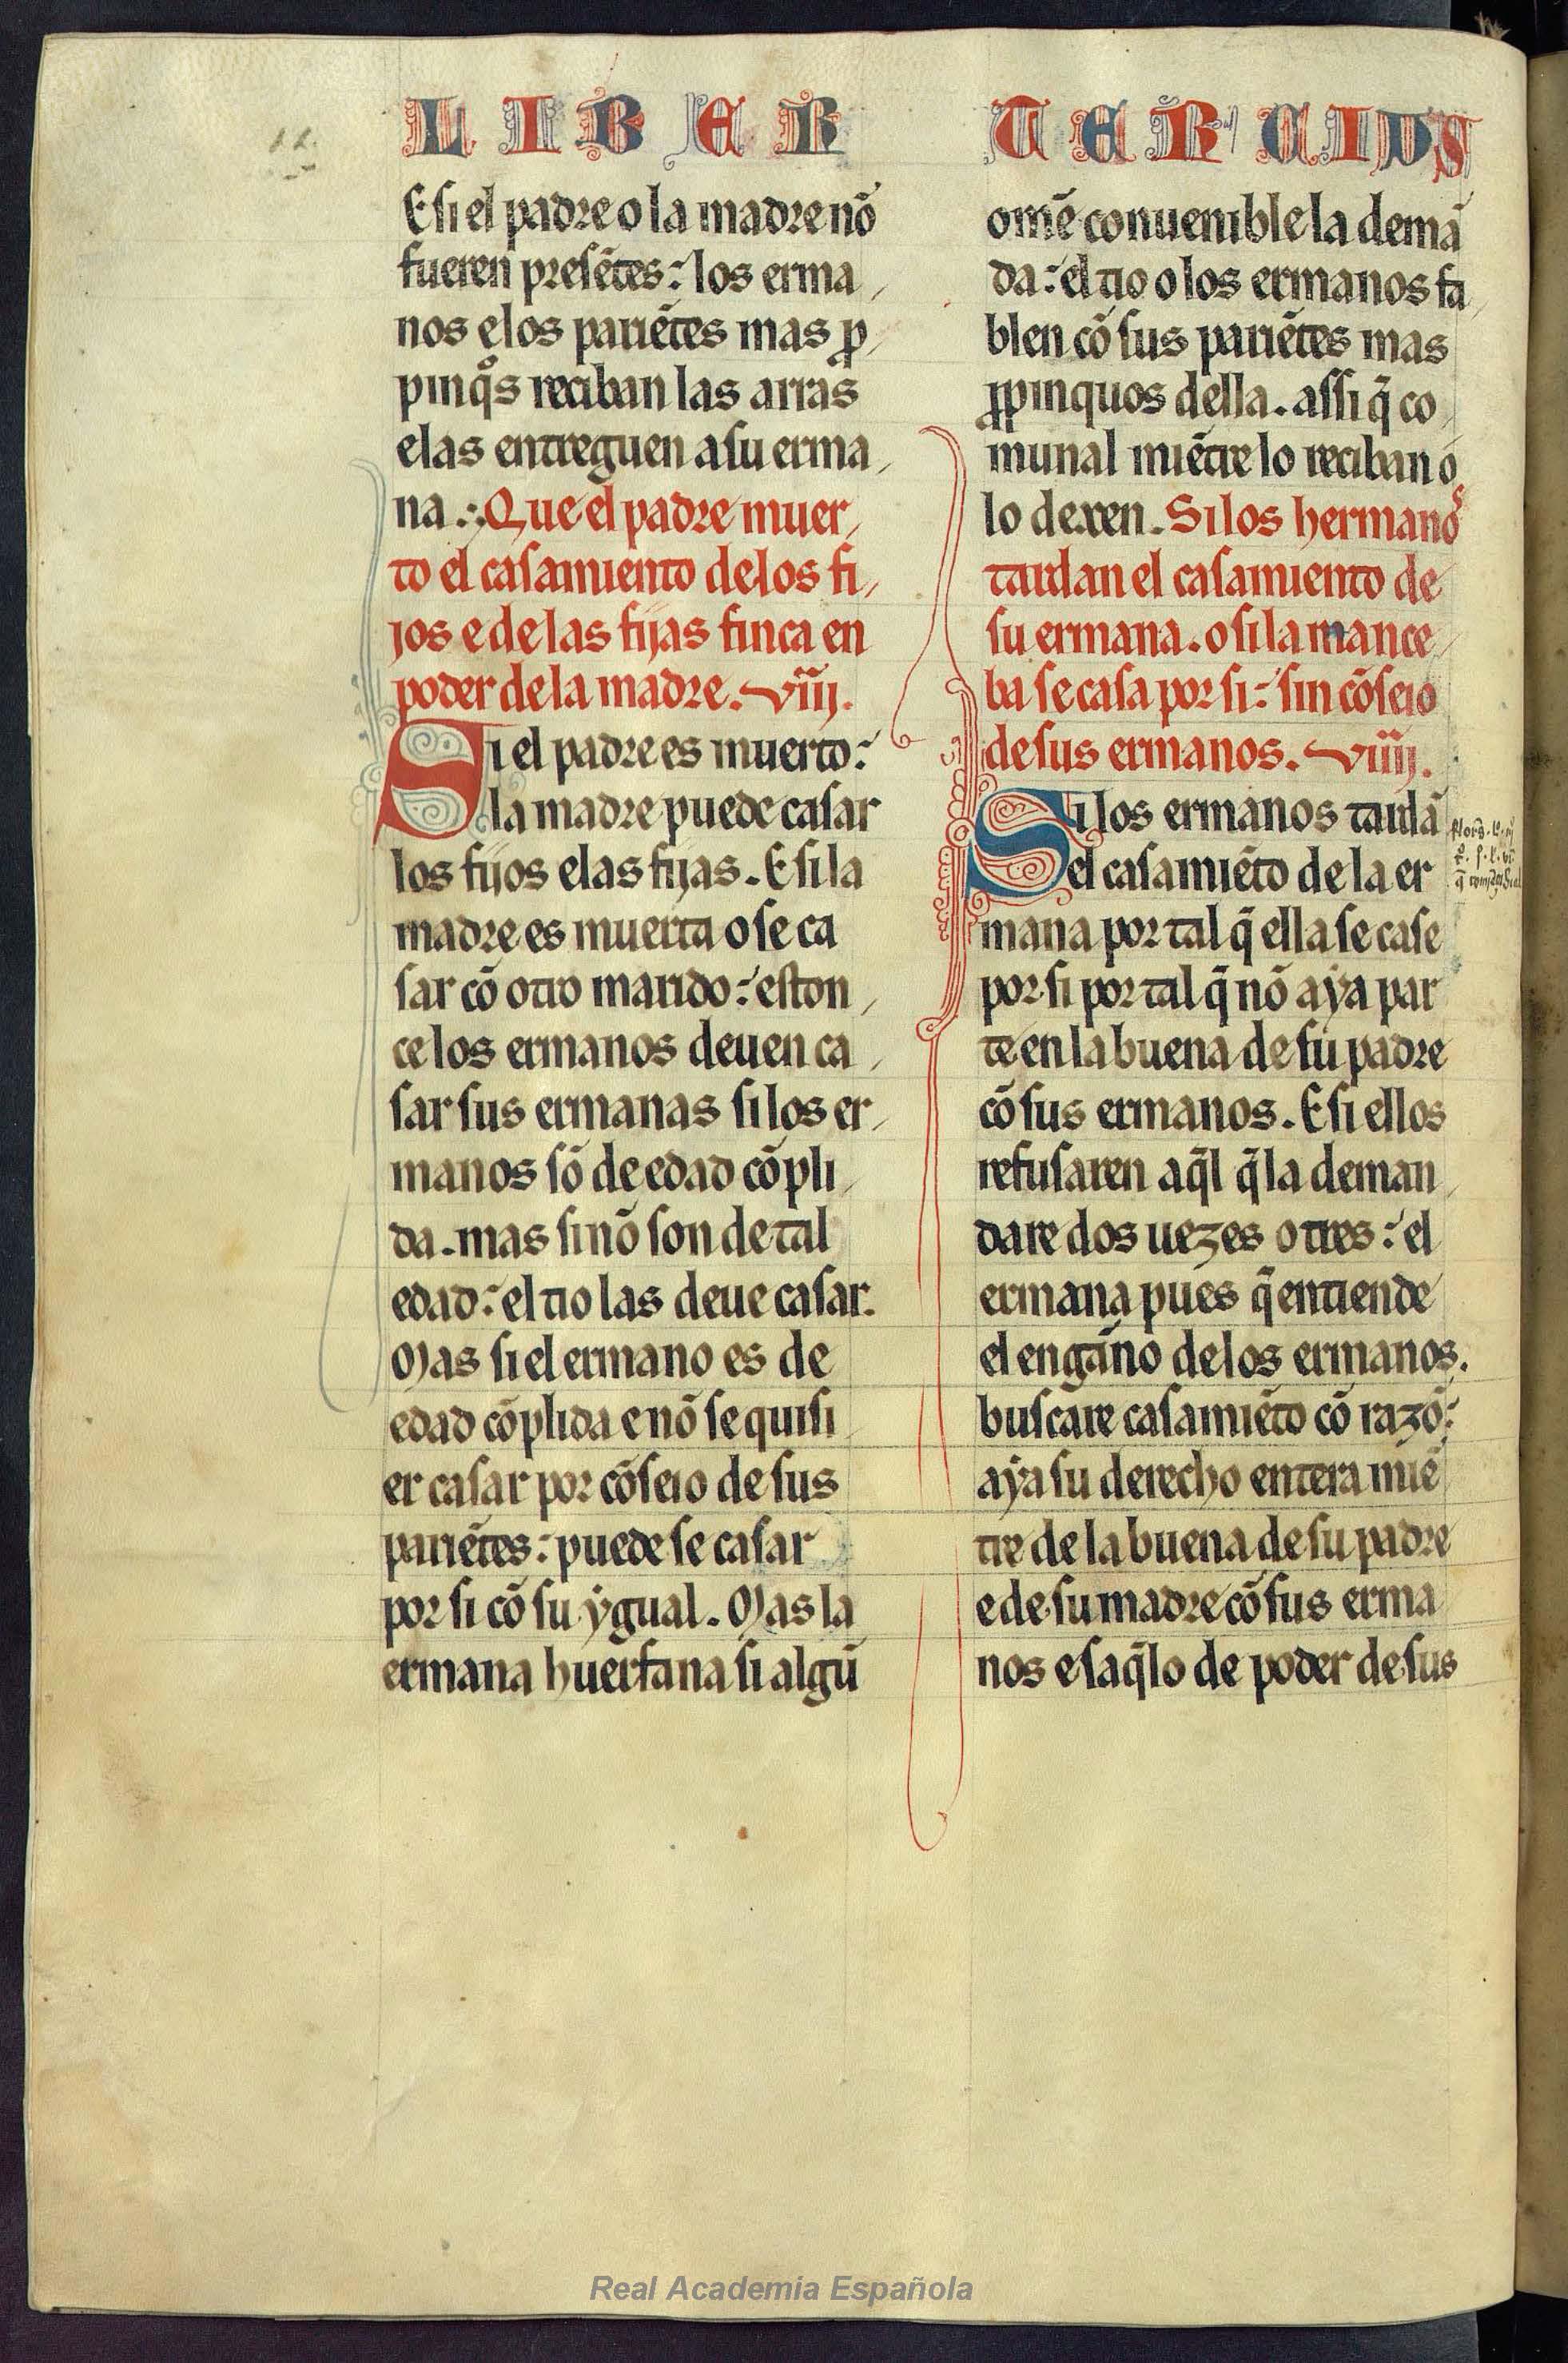 LIBER TERCIUS
E si el padre o la madre nõ
fueren presẽtes: los erma
nos e los pariẽtes mas ꝓ
pinqͦs reciban las arras
e las entreguen a su erma
na. Que el padre muer
to el casamiento de los fi
jos e de las fijas finca en
poder de la madre. viii.
Si el padre es muerto:
la madre puede casar
los fijos e las fijas. E si la
madre es muerta o se ca
sar cõ otro marido: eston
ce los ermanos deuen ca
sar sus ermanas si los er
manos sõ de edad cõpli
da. mas si nõ son de tal
edad: el tio las deue casar.
Mas si el ermano es de
edad cõplida e nõ se quisi
er casar por cõseio de sus
pariẽtes: puede se casar
por si cõ su ygual. Mas la
ermana huerfana si algũ
omẽ conuenible la demã
da: el tio o los ermanos fa
blen cõ sus pariẽtes mas
ꝓpinquos della. assi q̃ co
munal miẽtre lo reciban o
lo dexen. Si los hermanos
tardan el casamiento de
su ermana. o si la mance
ba se casa por si: sin cõseio
de sus ermanos. viiii.
Si los ermanos tardã
el casamiẽto de la er
mana por tal q̃ ella se case
por si por tal q̃ nõ aya par
te en la buena de su padre
cõ sus ermanos. E si ellos
refusaren aq̃l q̃ la deman
dare dos uezes o tres: el
ermana pues q̃ entiende
el enganno de los ermanos.
buscare casamiẽto cõ razõ:
aya su derecho entera miẽ
tre de la buena de su padre
e de su madre cõ sus erma
nos e saq̃lo de poder de sus
Real Academia Española